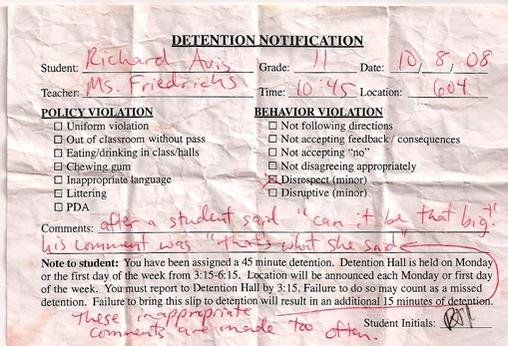 DETENTION NOTIFICATION
Student: Richard Avis Grade: 11 Date: 10/8/08
Teacher: Ms. Friedrichs Time: 10:45 Location: 604
POLICY VIOLATION
☐ Uniform violation
☐ Out of classroom without pass
☐ Eating/drinking in class/halls
☐ Chewing gum
☐ Inappropriate language
☐ Littering
☐ PDA
BEHAVIOR VIOLATION
☐ Not following directions
☐ Not accepting feedback / consequences
☐ Not accepting "no"
☐ Not disagreeing appropriately
☒ Disrespect (minor)
☐ Disruptive (minor)
Comments: after a student said "can it be that big"
his comment was "that's what she said"
Note to student: You have been assigned a 45 minute detention. Detention Hall is held on Monday
or the first day of the week from 3:15-6:15. Location will be announced each Monday or first day
of the week. You must report to Detention Hall by 3:15. Failure to do so may count as a missed
detention. Failure to bring this slip to detention will result in an additional 15 minutes of detention.
These inappropriate
comments are made too often.
Student Initials: